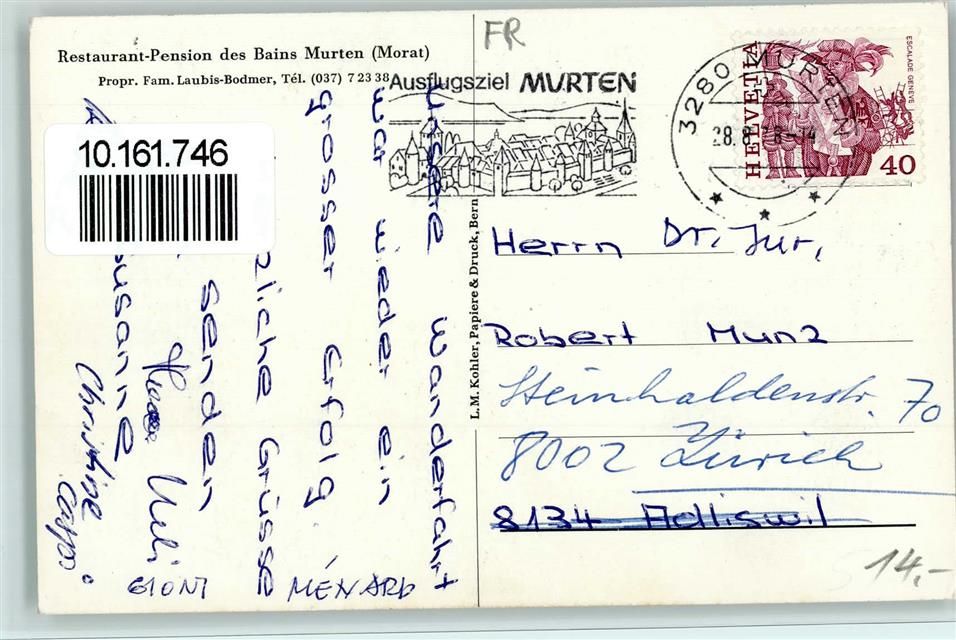 Restaurant-Pension des Bains Murten (Morat)
Propr. Fam. Laubis-Bodmer, Tél. (037) 7 23 38
10.161.746
Unsere Wanderfahrt
war wieder ein
grosser Erfolg.
zliche Grüsse
senden
Susanne
Christine
GIONI
MÉNARD
L.M. Kohler, Papiere & Druck, Bern
FR
Ausflugsziel MURTEN
3280 MURTEN
28.
-14
HELVETIA
ESCALADE GENÈVE
40
Herrn Dr. Jur,
Robert Munz
Steinhaldenstr. 70
8002 Zürich
8134 Adliswil
14,-